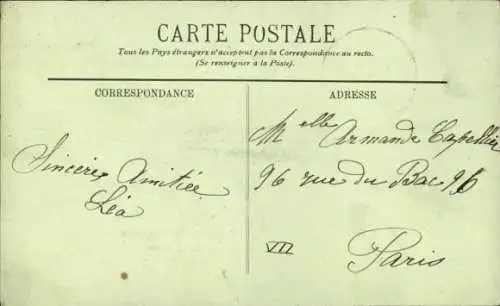 CARTE POSTALE
Tous les Pays étrangers n'acceptent pas la Correspondance au recto.
(Se renseigner à la Poste).
CORRESPONDANCE
ADRESSE
Sincères Amitiée
Léa
Melle Armande
96 rue du Bac 96
VII
Paris